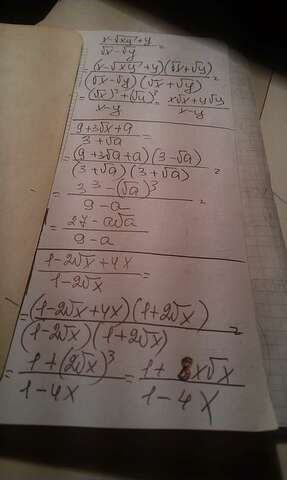 x-√xy²+y
√x-√y
(x-√xy²+y)(√x+√y) =
(√x-√y)(√x+√y)
= (√x)³+(√y)³ = x√x+y√y
x-y x-y
9+3√x+a =
3+√a
= (9+3√a+a)(3-√a) =
(3+√a)(3+√a)
= 3³-(√a)³ =
9-a
= 27-a√a
9-a
1-2√x+4x =
1-2√x
= (1-2√x+4x)(1+2√x) =
(1-2√x)(1+2√x)
= 1+(2√x)³ = 1+8x√x
1-4x 1-4x